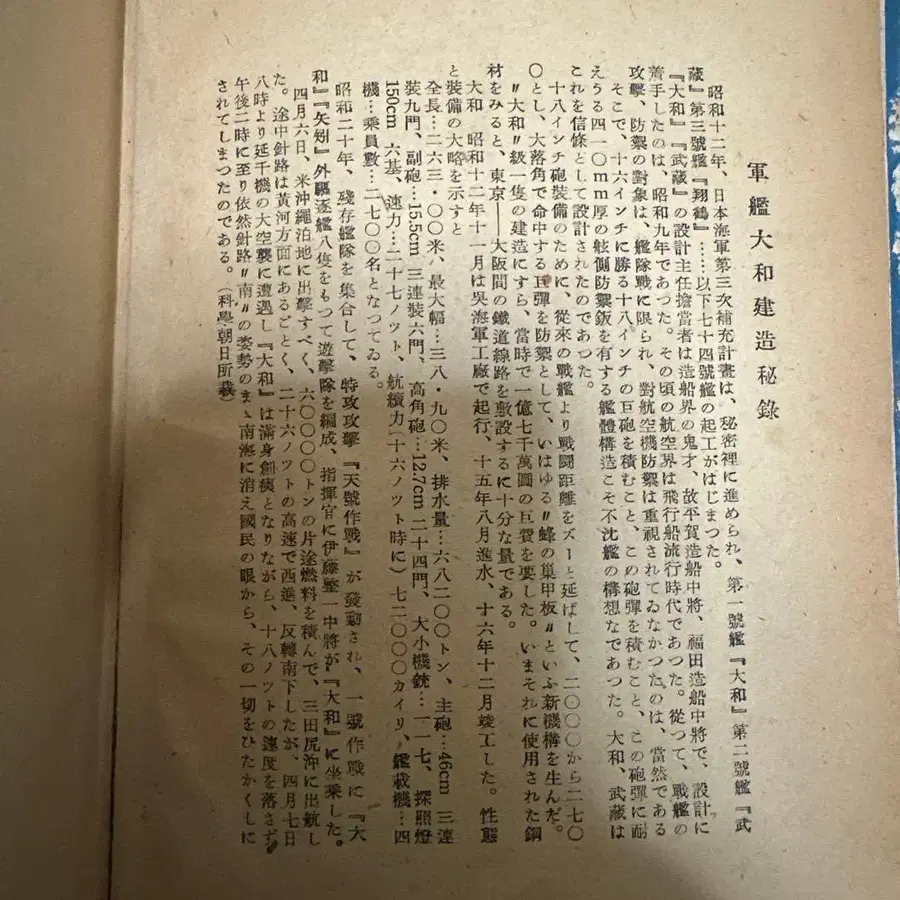 軍艦大和建造秘錄
昭和十二年、日本海軍第三次補充計畫は、秘密裡に進められ、第一號艦『大和』第二號艦『武
藏』第三號艦『翔鶴』……以下七十四號艦の起工がはじまつた。
『大和』『武藏』の設計主任擔當者は造船界の鬼才、故平賀造船中將、福田造船中將で、設計に
着手したのは、昭和九年であつた。その頃の航空界は飛行船流行時代であつた。從つて、戰艦の
攻擊、防禦の對象は、艦隊戰に限られ、對航空機防禦は重視されてゐなかつたのは、當然である
そこで、十六インチに勝る十八インチの巨砲を積むこと、この砲彈を積むこと、この砲彈に耐
えうる四一〇mm厚の舷側防禦鈑を有する艦體構造こそ不沈艦の構想なであつた。大和、武藏は
これを信條として設計されたのであつた。
十八インチ砲裝備のために、從來の戰艦より戰鬪距離をズーと延ばして、二〇〇〇から二七〇
〇とし、大落角で命中する巨彈を防禦として、いはゆる〃蜂の巢甲板〃といふ新機構を生んだ。
〃大和〃級一隻の建造にすら、當時で一億七千萬圓の巨費を要した。いまそれに使用された鋼
材をみると、東京——大阪間の鐵道線路を敷設するに十分な量である。
大和　昭和十二年十一月は吳海軍工廠で起行、十五年八月進水、十六年十二月竣工した。性態
と裝備の大略を示すと
全長…二六三・〇〇米、最大幅…三八・九〇米、排水量…六八二〇〇トン、主砲…46cm 三連
裝九門、副砲…15.5cm 三連裝六門、高角砲…12.7cm 二十四門、大小機銃…一一七、探照燈
150cm 六基、速力…二十七ノット、航續力(十六ノット時に)七二〇〇〇カイリ、艦載機…四
機…乘員數…二七〇〇名となつてゐる。
昭和二十年、殘存艦隊を集合して、特攻攻擊『天號作戰』が發動され、一號作戰に『大
和』『矢矧』外驅逐艦八隻をもつて遊擊隊を編成、指揮官に伊藤整一中將が『大和』に坐乘した。
四月六日、米沖繩泊地に出擊すべく、六〇〇〇〇トンの片途燃料を積んで、三田尻沖に出航し
た。途中針路は黃河方面にあるごとく、二十六ノットの高速で西進、反轉南下したが、四月七日
八時より延千機の大空襲に遭遇し『大和』は滿身創痍となりながら、十八ノットの速度を落さず
午後二時に至り依然針路〃南〃の姿勢のまゝ南海に消え國民の眼から、その一切をひたかくしに
されてしまつたのである。(科學朝日所載)